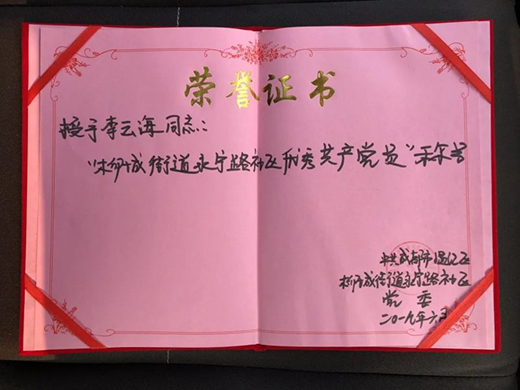 荣誉证书
授予李云海同志：
“柳城街道永宁路社区优秀共产党员”称号
中共成都市温江区
柳城街道永宁路社区
党委
二〇一九年六月